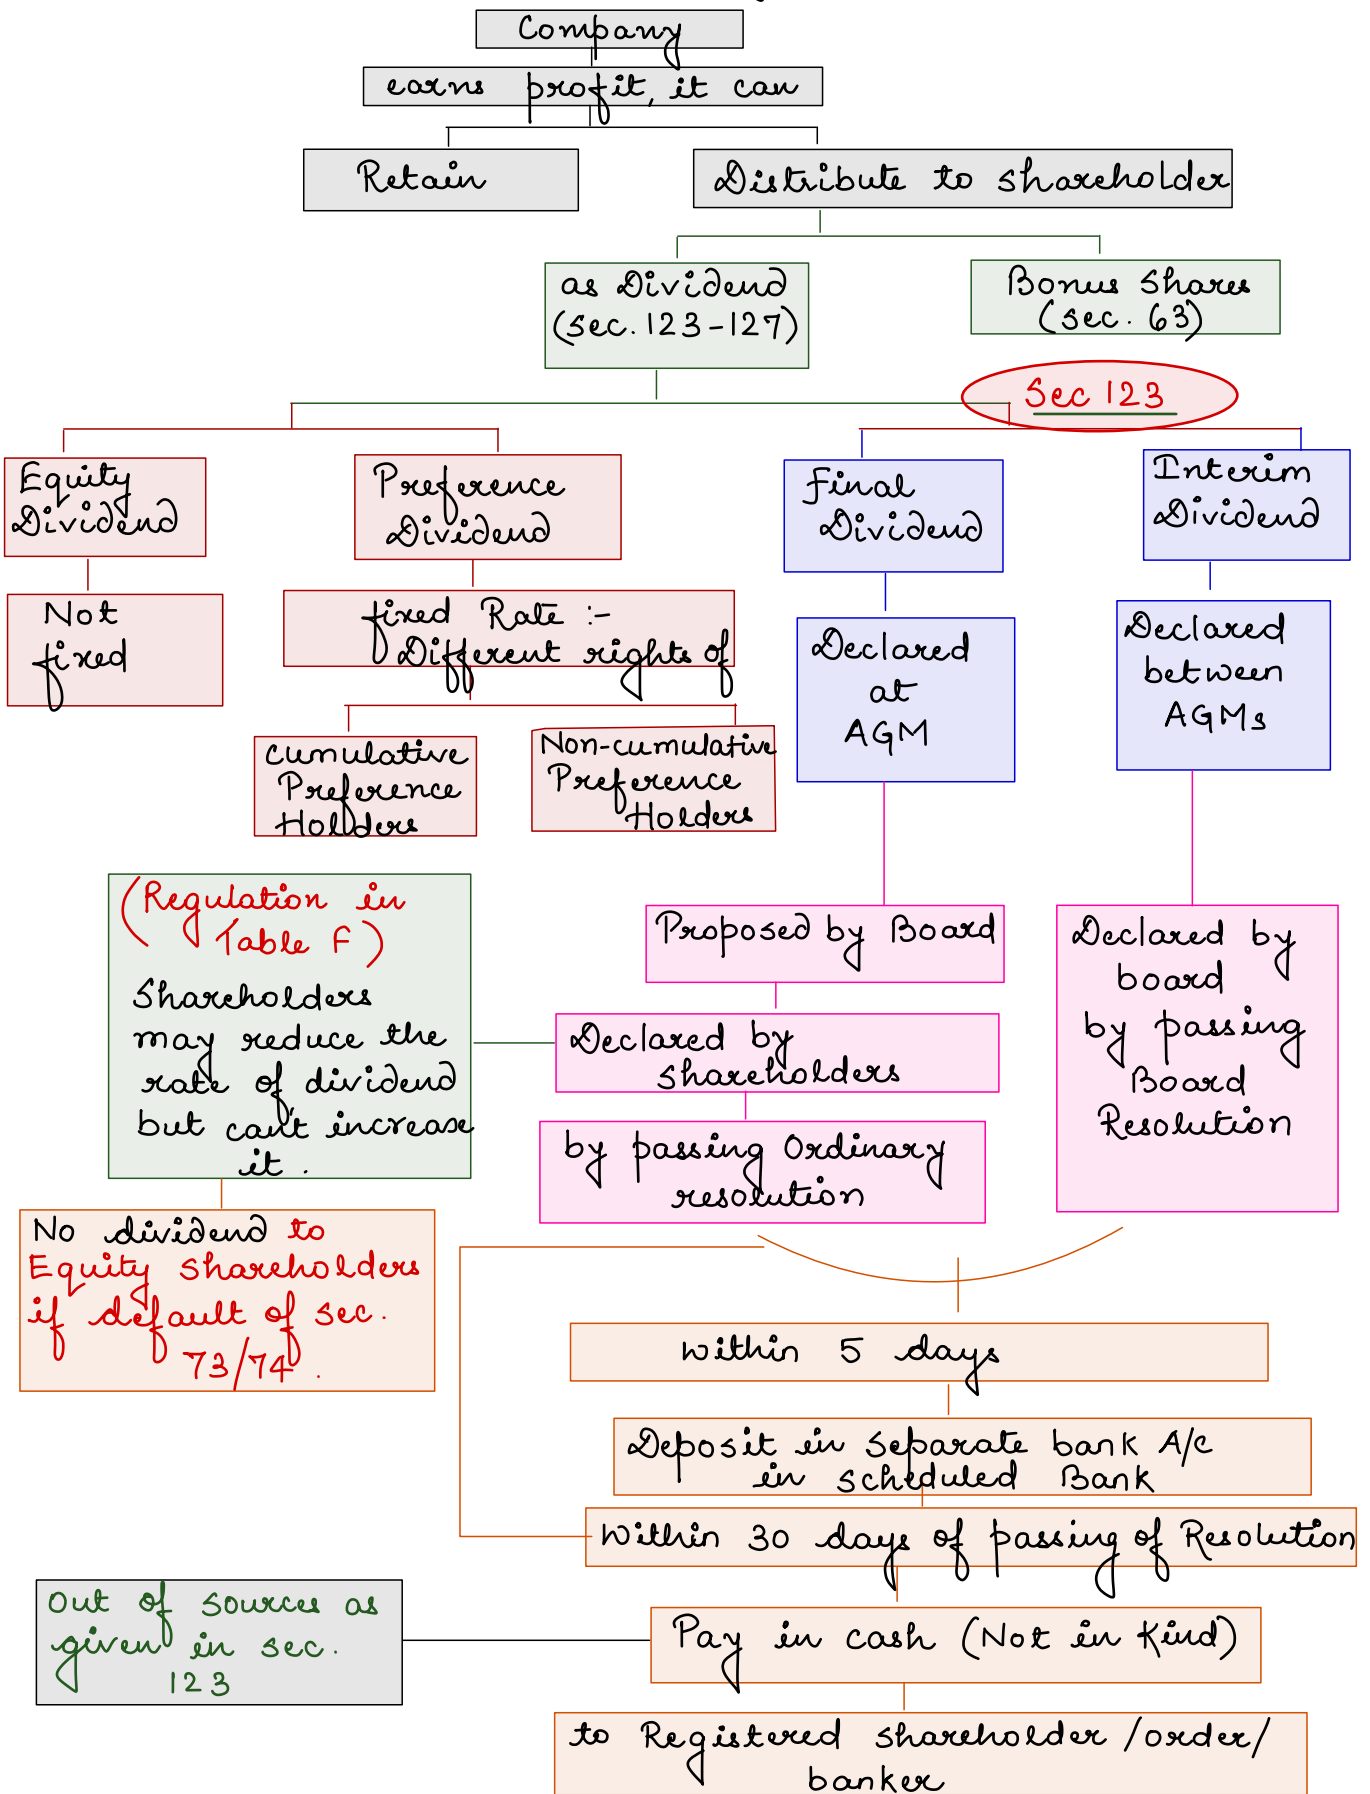 Company
earns profit, it can
Retain
Distribute to shareholder
as Dividend
(sec. 123-127)
Bonus Shares
(sec. 63)
Sec 123
Equity
Dividend
Preference
Dividend
Final
Dividend
Interim
Dividend
Not
fixed
fixed Rate :-
Different rights of
Declared
at
AGM
Declared
between
AGMs
Cumulative
Preference
Holders
Non-cumulative
Preference
Holders
(Regulation in
Table F)
Shareholders
may reduce the
rate of dividend
but can't increase
it.
Proposed by Board
Declared by
shareholders
by passing Ordinary
resolution
Declared by
board
by passing
Board
Resolution
No dividend to
Equity shareholders
if default of sec.
73/74.
within 5 days
Deposit in separate bank A/c
in scheduled Bank
Within 30 days of passing of Resolution
Out of sources as
given in sec.
123
Pay in cash (Not in Kind)
to Registered shareholder /order/
banker